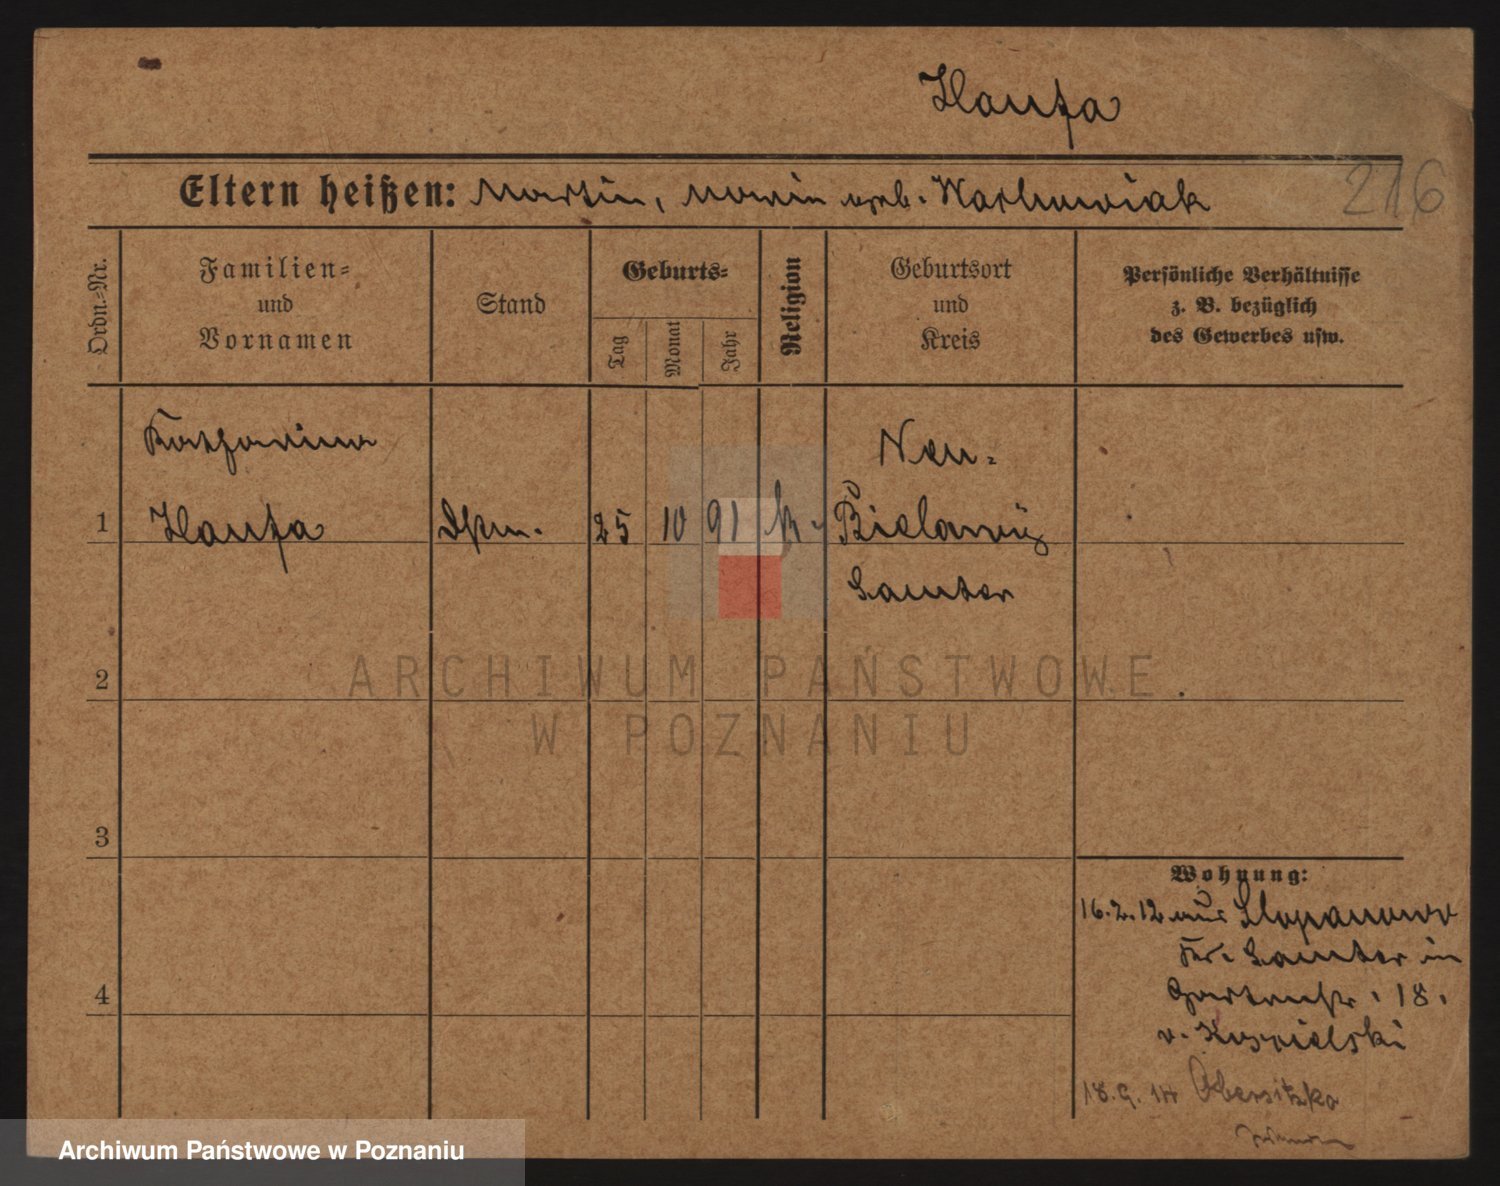 Hanfa
216
Eltern heißen: Martin, Marie geb. Marhuwiak
Ordn.-Nr.
Familien-
und
Vornamen
Stand
Geburts-
Tag
Monat
Jahr
Religion
Geburtsort
und
Kreis
Persönliche Verhältnisse
z. B. bezüglich
des Gewerbes usw.
Katharina
Neu-
1
25
10
91
k.
Samter
ARCHIWUM PAŃSTWOWE
2
W POZNANIU
3
Wohnung:
16.2.12 aus
Kr. Samter in
4
Gartenstr. 18.
v.
18.9.14 Obersitzko
Archiwum Państwowe w Poznaniu